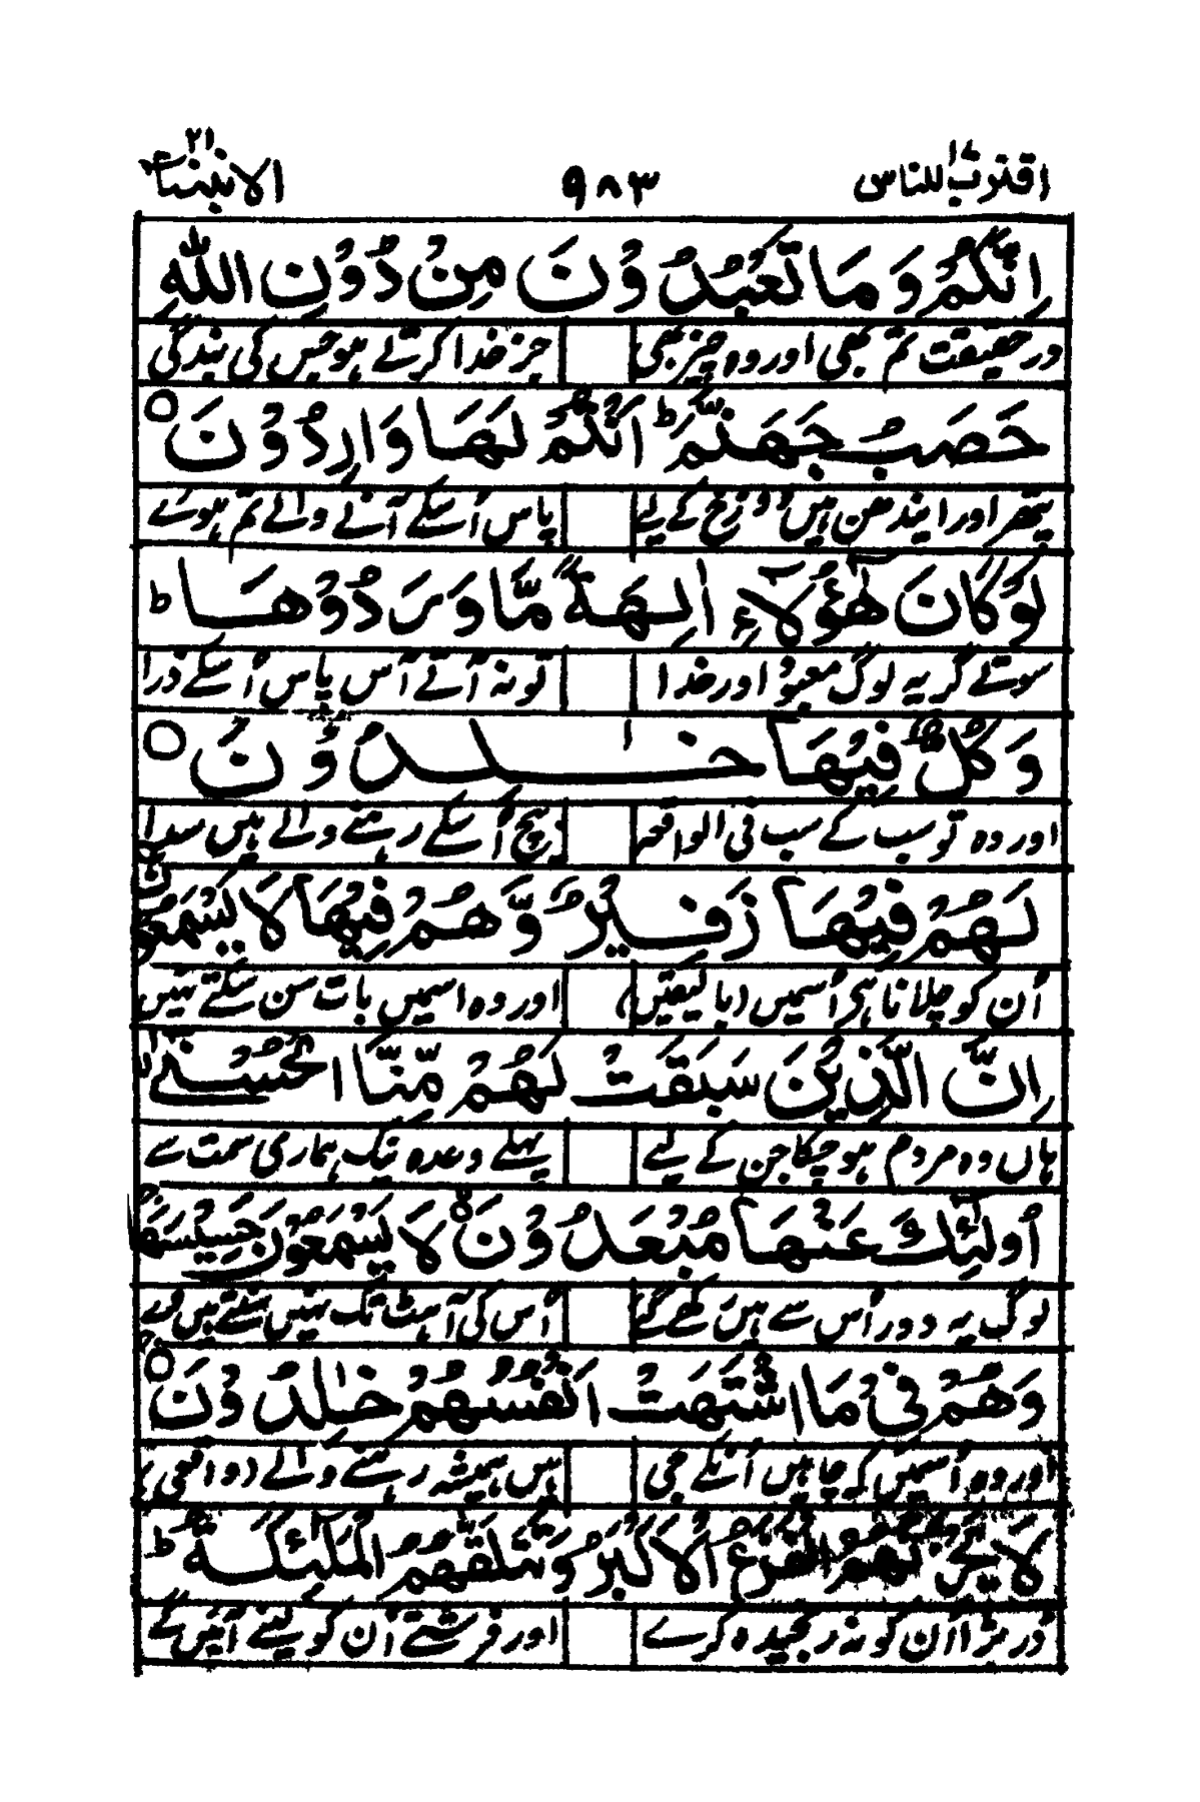 اقترب للناس ١٧
٩٨٣
الانبیاء ٢١
اِنَّكُمْ وَ مَا تَعْبُدُوْنَ مِنْ دُوْنِ اللّٰهِ
درحقیقت تم بھی اور وہ چیز بھی جز خدا کرتے ہو جس کی بندگی
حَصَبُ جَهَنَّمَ ؕ اَنْتُمْ لَهَا وَارِدُوْنَ ○
پتھر اور ایندھن ہیں دوزخ کے لیے پاس اُسکے آنے والے تم ہوئے
لَوْ كَانَ هٰۤؤُلَآءِ اٰلِهَةً مَّا وَرَدُوْهَا ؕ
ہوتے گر یہ لوگ معبود اور خدا تو نہ آتے اس پاس اُسکے ذرا
وَ كُلٌّ فِيْهَا خٰلِدُوْنَ ○
اور وہ تو سب کے سب فی الواقعہ بیچ اُسکے رہنے والے ہیں سدا
لَهُمْ فِيْهَا زَفِيْرٌ وَّ هُمْ فِيْهَا لَا يَسْمَعُوْنَ
اُن کو چلانا ہے اُسمیں (با یقیں) اور وہ اسمیں بات سن سکتے نہیں
اِنَّ الَّذِيْنَ سَبَقَتْ لَهُمْ مِّنَّا الْحُسْنٰۤى ۙ
ہاں وہ مردم ہو چکا جن کے لیے پہلے وعدہ نیک ہماری سمت سے
اُولٰٓئِكَ عَنْهَا مُبْعَدُوْنَ ۙ لَا يَسْمَعُوْنَ حَسِيْسَهَا
لوگ یہ دور اُس سے ہیں رکھے گئے اُس کی آہٹ تک نہیں سنتے ہیں
وَ هُمْ فِيْ مَا اشْتَهَتْ اَنْفُسُهُمْ خٰلِدُوْنَ ○
اور وہ اُسمیں کہ چاہیں اُنکے جی ہیں ہمیشہ رہنے والے (واقعی
لَا يَحْزُنُهُمُ الْفَزَعُ الْاَكْبَرُ وَ تَتَلَقّٰهُمُ الْمَلٰٓئِكَةُ ؕ
ڈر بڑا اُن کو نہ رنجیدہ کرے اور فرشتے اُن کو لینے آئیں گے